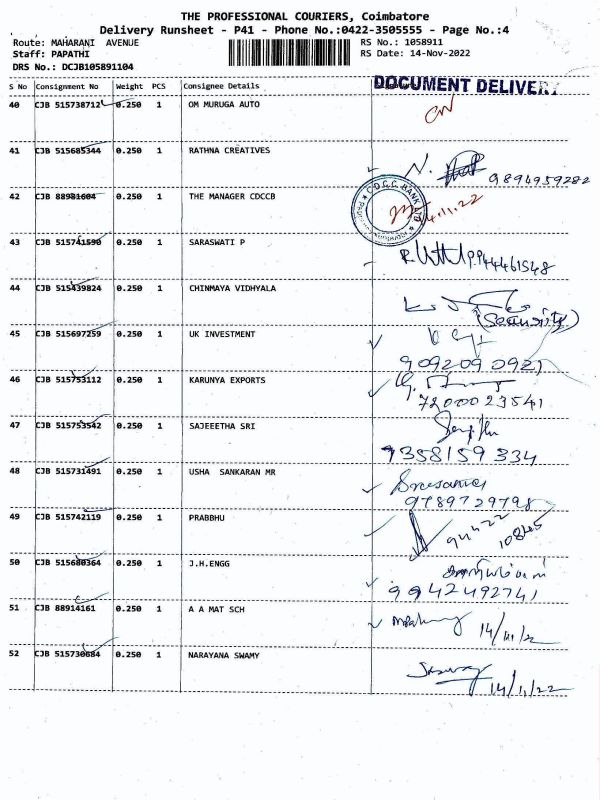 THE PROFESSIONAL COURIERS, Coimbatore
Delivery Runsheet - P41 - Phone No.:0422-3505555 - Page No.:4
Route: MAHARANI AVENUE RS No.: 1058911
Staff: PAPATHI RS Date: 14-Nov-2022
DRS No.: DCJB105891104
S No Consignment No Weight PCS Consignee Details DOCUMENT DELIVERY
40 CJB 515738712 0.250 1 OM MURUGA AUTO
41 CJB 515685344 0.250 1 RATHNA CREATIVES
9894959282
42 CJB 88981604 0.250 1 THE MANAGER CDCCB
C.D.C.C. BANK LTD
14.11.22
43 CJB 515741590 0.250 1 SARASWATI P
9944461548
44 CJB 515439824 0.250 1 CHINMAYA VIDHYALA
(Security)
45 CJB 515697259 0.250 1 UK INVESTMENT
9092090921
46 CJB 515753112 0.250 1 KARUNYA EXPORTS
7200023541
47 CJB 515753542 0.250 1 SAJEEETHA SRI
9358159334
48 CJB 515731491 0.250 1 USHA SANKARAN MR
9789729798
49 CJB 515742119 0.250 1 PRABBHU
50 CJB 515680364 0.250 1 J.H.ENGG
9942492741
51 CJB 88914161 0.250 1 A A MAT SCH
14/11/22
52 CJB 515730684 0.250 1 NARAYANA SWAMY
14/11/22